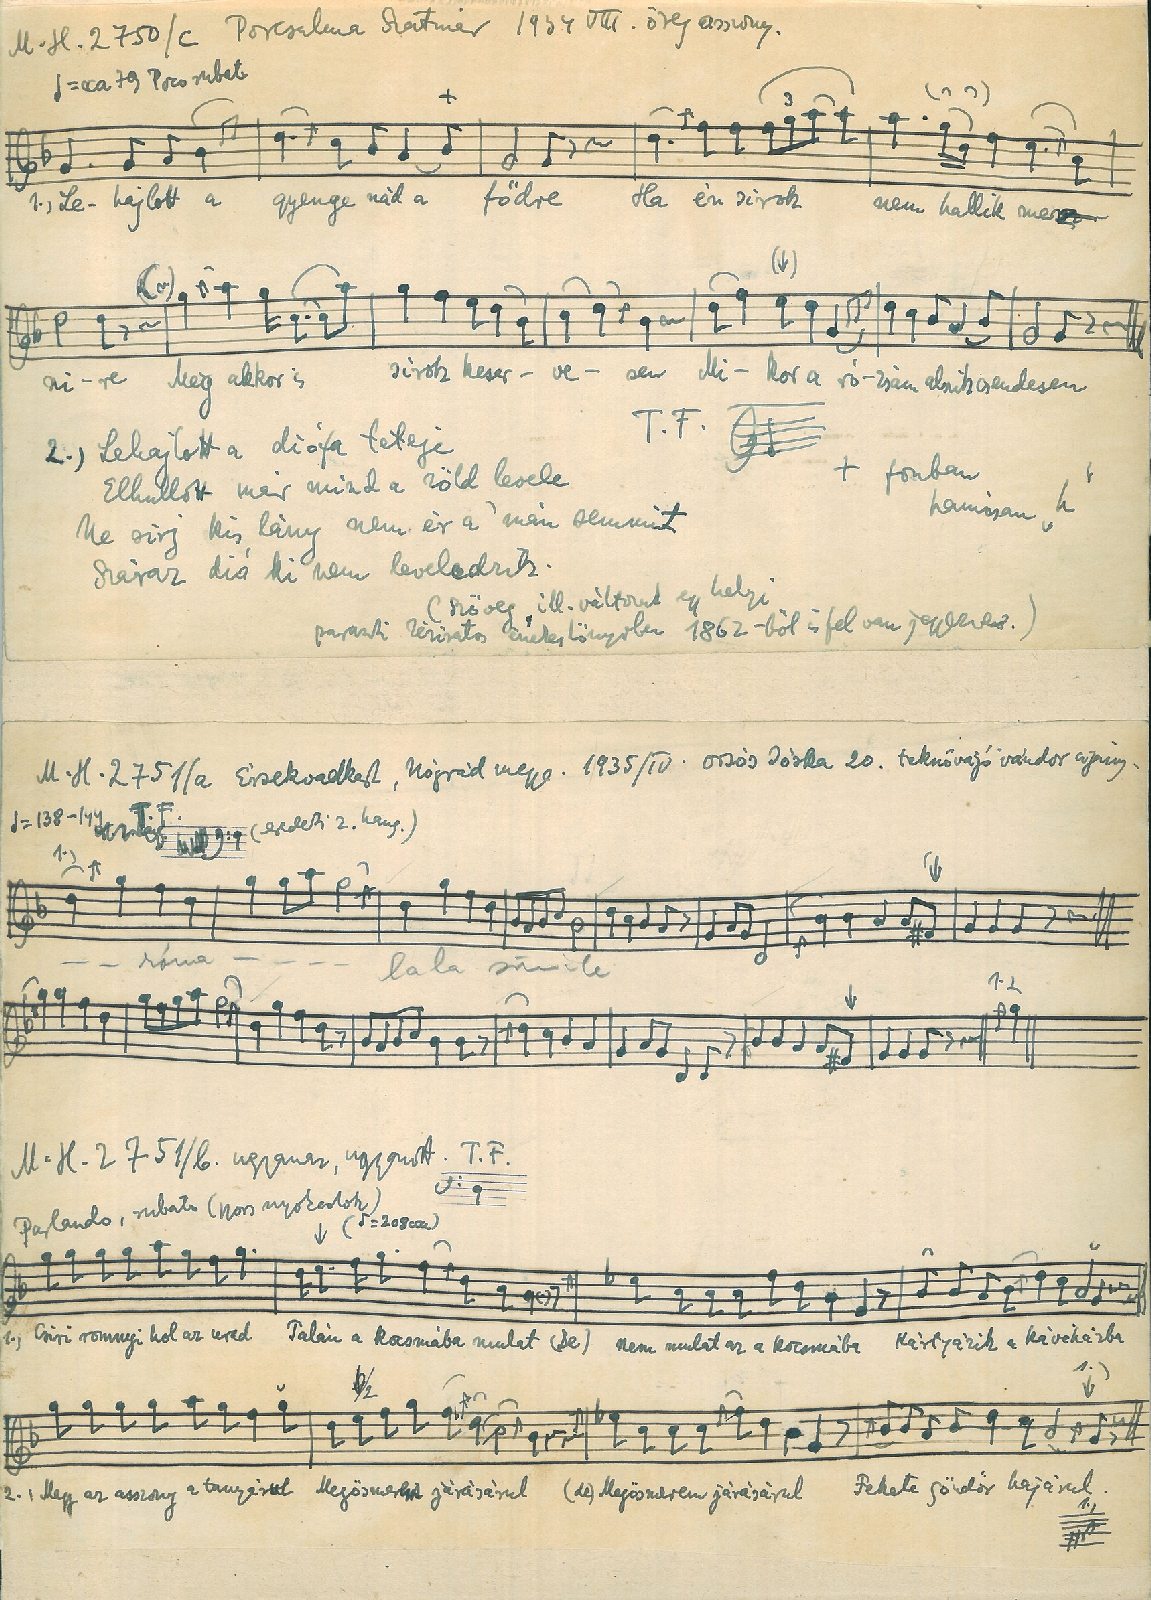 M.H. 2750/c Porcsalma Szatmár 1934 VIII. öreg asszony.
♩=cca 79 Poco rubato
1., Le-hajlott a gyenge nád a födre Ha én sirok nem hallik mesz
szi-re Még akkor is sirok keser-ve-sen Mi-kor a ró-zsám alszik csendesen
2., Lehajlott a diófa teteje T.F.
Elhullott már mind a zöld levele + fonban
Ne sirj kis lány nem ér a' mán semmit hamisan „h"
Száraz dió ki nem leveledzik.
(szöveg, ill. változat egy helyi
paraszti kéziratos énekeskönyvben 1862-ből is fel van jegyezve.)
M.H. 2751/a Érsekvadkert, Nógrád megye. 1935/IV. Orsós Jóska 20. teknővájó vándor cigány.
♩=138-144 T.F. (eredeti 2. hang.)
1.,
-- róma ---- la la simile
1.2.
M.H. 2751/b. ugyanaz, ugyanott. T.F.
Parlando, rubato (♪=208 cca)
1., Csiri romnyi hol az urad Talán a kocsmába mulat (De) nem mulat az a kocsmába Kártyázik a kávéházba
2., Megy az asszony a tanyárul Megösmerem járásárul (de) Megösmerem járásárul Fekete göndör hajárul.
1.,